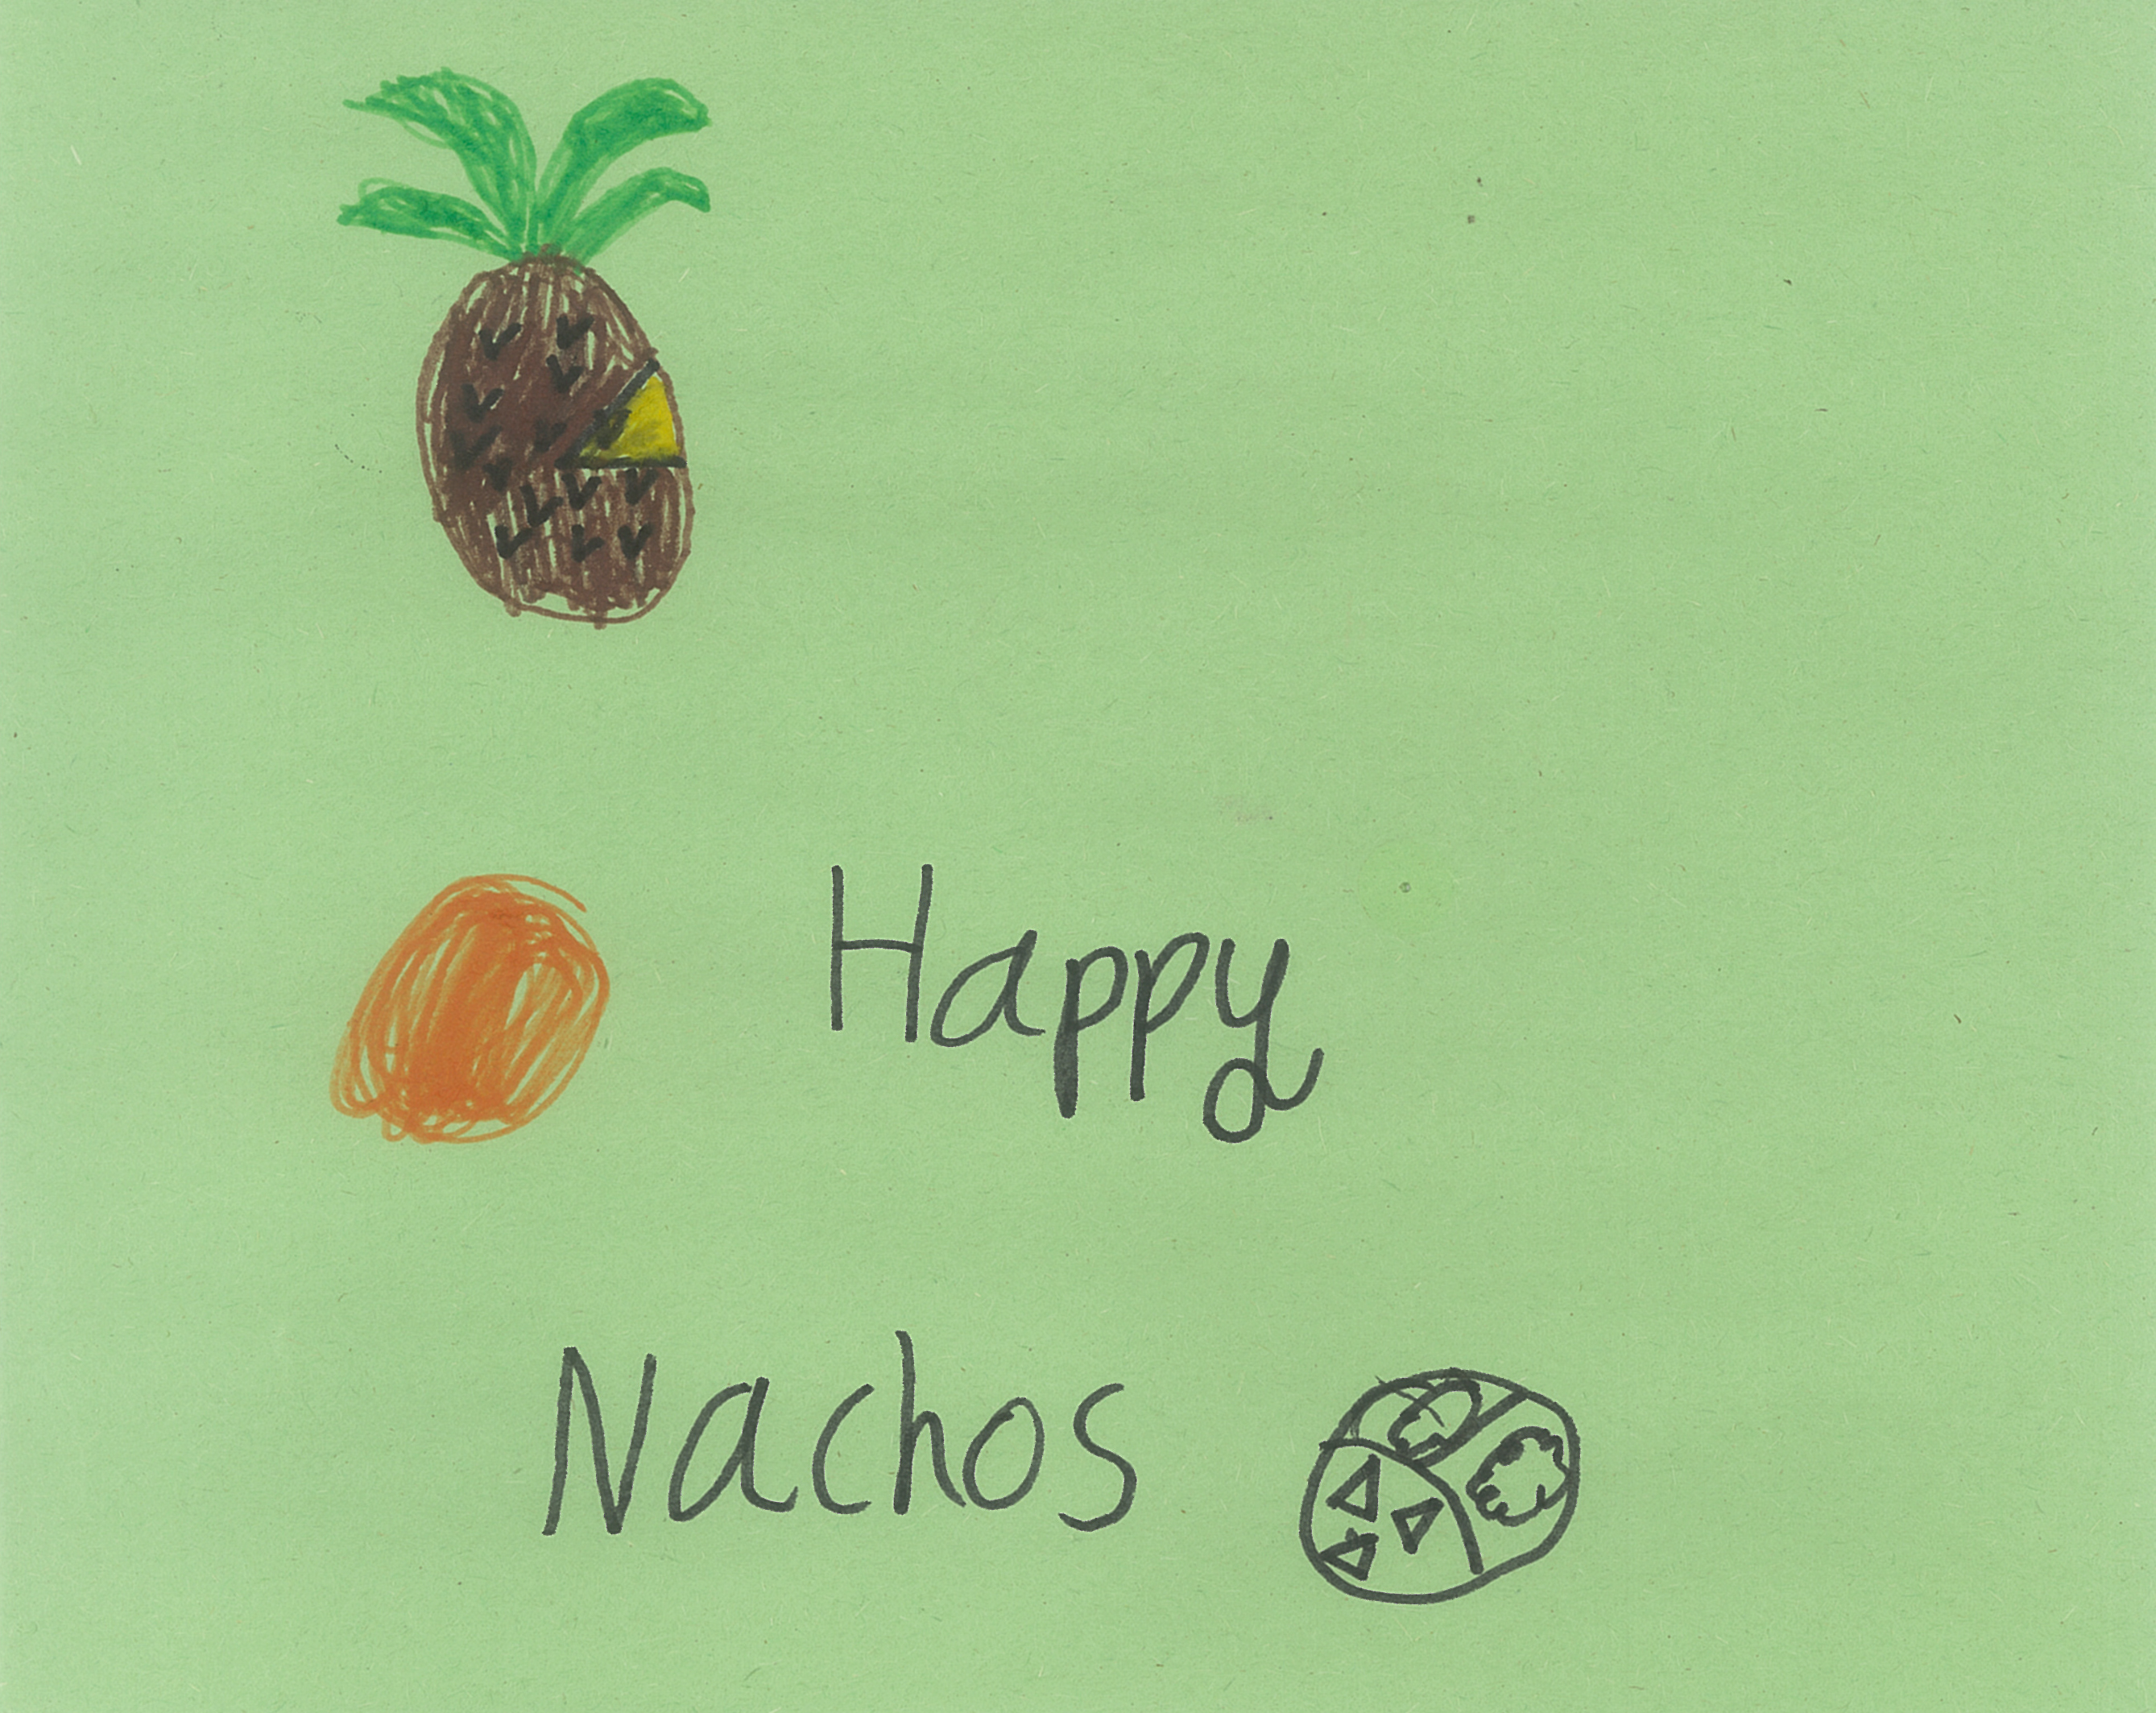 Happy
Nachos